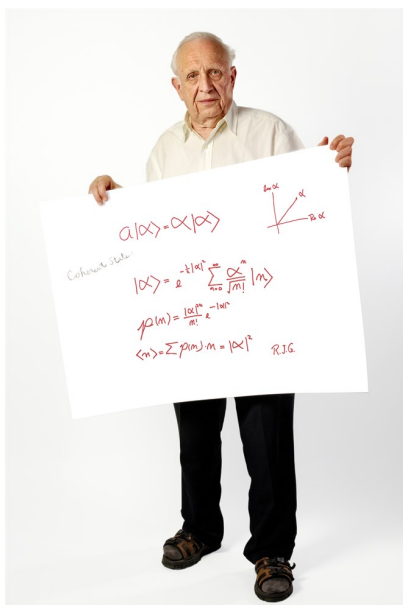 Im α
α
Re α
a|α⟩=α|α⟩
Coherent State
|α⟩ = e^{-½|α|²} ∑_{n=0}^{∞} α^n/√n! |n⟩
p(n) = |α|^{2n}/n! e^{-|α|²}
⟨n⟩=∑ p(n)·n = |α|²
R.J.G.